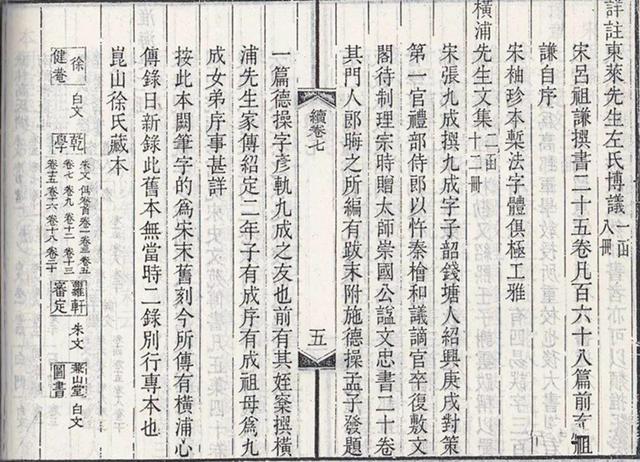 詳註東萊先生左氏博議 一函八冊
宋呂祖謙撰書二十五卷凡百六十八篇前有祖
謙自序
宋袖珍本槧法字體俱極工雅
橫浦先生文集 二函十二冊
宋張九成撰九成字子韶錢塘人紹興庚戌對策
第一官禮部侍郎以忤秦檜和議謫官卒復敷文
閣待制理宗時贈太師崇國公諡文忠書二十卷
其門人郎晦之所編有跋末附施德操孟子發題
續卷七
五
一篇德操字彥軌九成之友也前有其姪撰橫
浦先生家傳紹定二年子有成序有成祖母為九
成女弟序事甚詳
按此本闕筆字的為宋末舊刻今所傳有橫浦心
傳錄日新錄此舊本無當時二錄別行專本也
崑山徐氏藏本
徐健菴 白文 乾學 朱文 俱卷首卷一卷三卷五卷七卷九卷十二卷十三卷十五卷十六卷十八卷二十 蘿軒審定 朱文 兼山堂圖書 白文